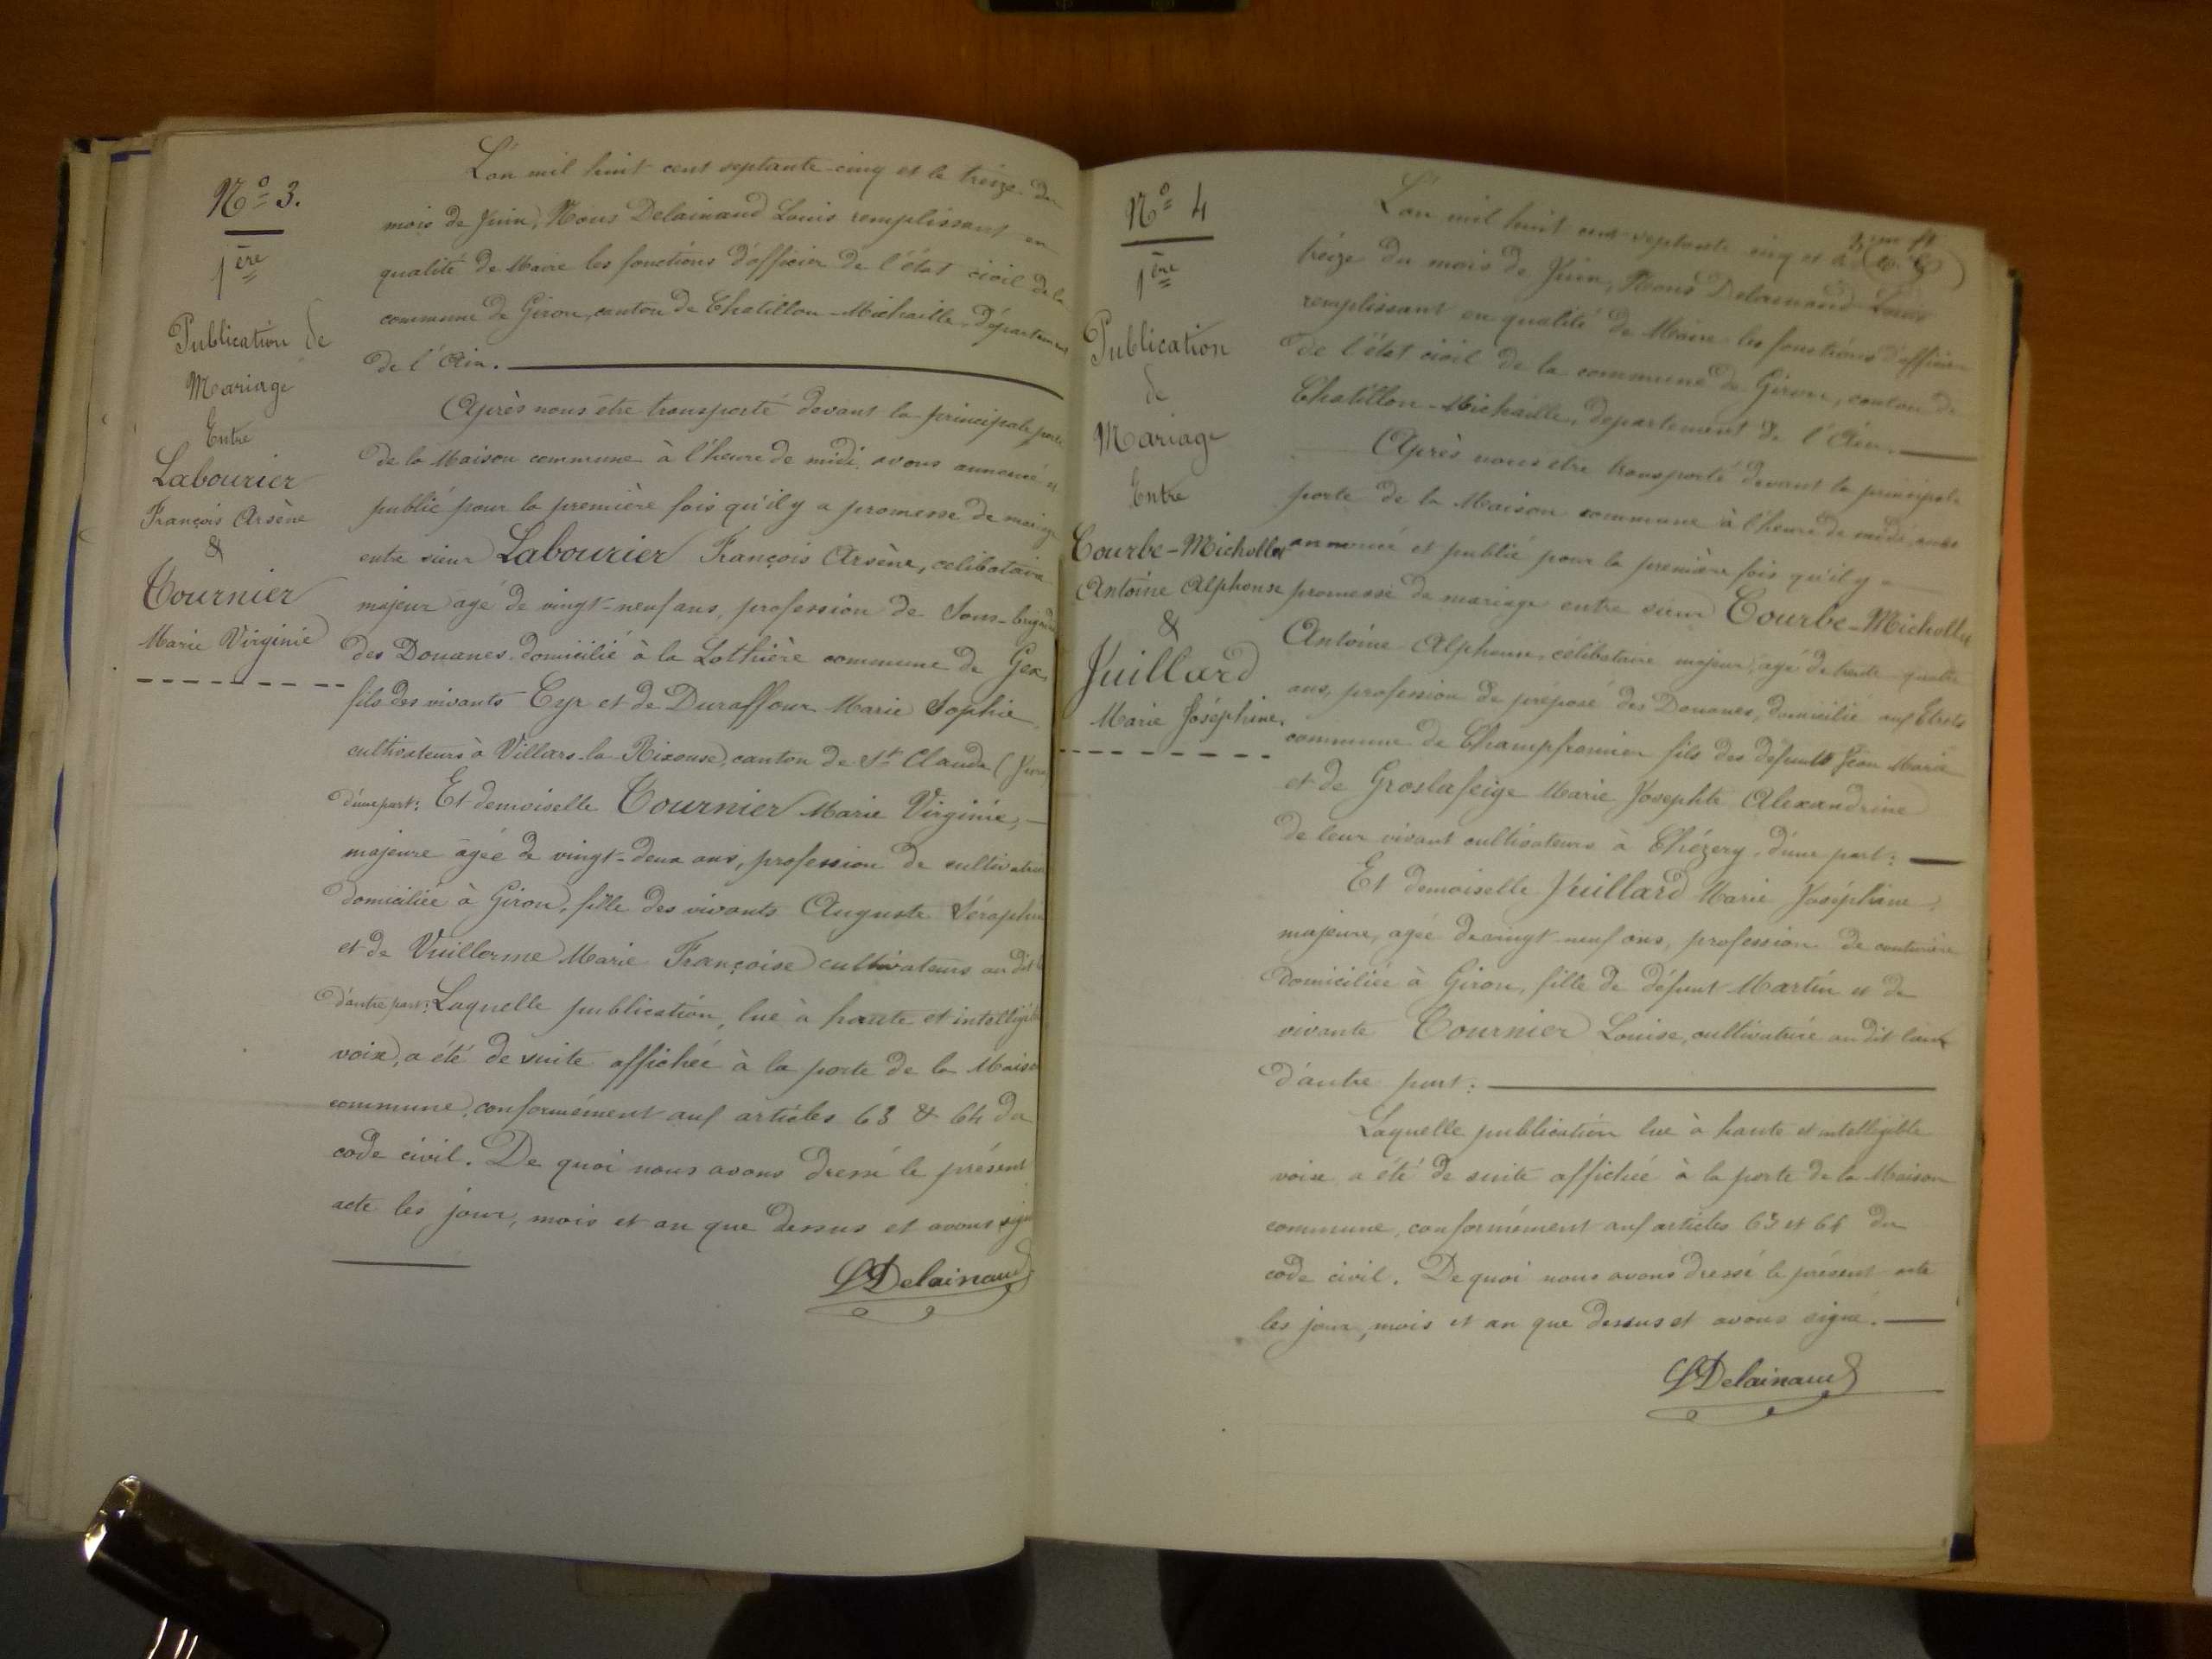 Nº 3.
1ère
Publication de
Mariage
Entre
Labourier
François Arsène
&
Tournier
Marie Virginie
L'an mil huit cent septante-cinq et le treize du
mois de Juin, Nous Delainaud Louis remplissant en
qualité de Maire les fonctions d'officier de l'état civil de la
commune de Giron, canton de Chatillon-Michaille, département
de l'Ain.
Après nous être transporté devant la principale porte
de la Maison commune à l'heure de midi, avons annoncé et
publié pour la première fois qu'il y a promesse de mariage
entre sieur Labourier François Arsène, célibataire
majeur agé de vingt-neuf ans, profession de Sous-brigadier
des Douanes, domicilié à la Lothière commune de Gex,
fils des vivants Cyr et de Duraffour Marie Sophie,
cultivateurs à Villars-la Rixouse, canton de St Claude (Jura)
d'une part: Et demoiselle Tournier Marie Virginie,
majeure âgée de vingt-deux ans, profession de cultivatrice
domiciliée à Giron, fille des vivants Auguste Séraphin
et de Vuillerme Marie Françoise cultivateurs au dit
d'autre part: Laquelle publication, lue à haute et intelligible
voix, a été de suite affichée à la porte de la Maison
commune, conformément aux articles 63 & 64 du
code civil. De quoi nous avons dressé le présent
acte les jour, mois et an que dessus et avons signé
LDelainaud
Nº 4
1ère
Publication
de
Mariage
Entre
Courbe-Michollet
Antoine Alphonse
&
Juillard
Marie Joséphine.
L'an mil huit cent septante cinq et le
treize du mois de Juin, Nous Delainaud Louis
remplissant en qualité de Maire les fonctions d'officier
de l'état civil de la commune de Giron, canton de
Chatillon-Michaille, département de l'Ain.
Après nous être transporté devant la principale
porte de la Maison commune à l'heure de midi, avons
annoncé et publié pour la première fois qu'il y a
promesse de mariage entre sieur Courbe-Michollet
Antoine Alphonse, célibataire majeur, agé de trente-quatre
ans, profession de préposé des Douanes, domicilié aux Etrets
commune de Champfromier fils des défunts Jean Marie
et de Groslafeige Marie Josephte Alexandrine
de leur vivant cultivateurs à Chézery, d'une part:
Et demoiselle Juillard Marie Joséphine,
majeure, agée de vingt-neuf ans, profession de couturière
domiciliée à Giron, fille de défunt Martin et de
vivante Tournier Louise, cultivatrice au dit lieu
d'autre part:
Laquelle publication lue à haute et intelligible
voix a été de suite affichée à la porte de la Maison
commune, conformément aux articles 63 et 64 du
code civil. De quoi nous avons dressé le présent acte
les jour, mois et an que dessus et avons signé.
LDelainaud